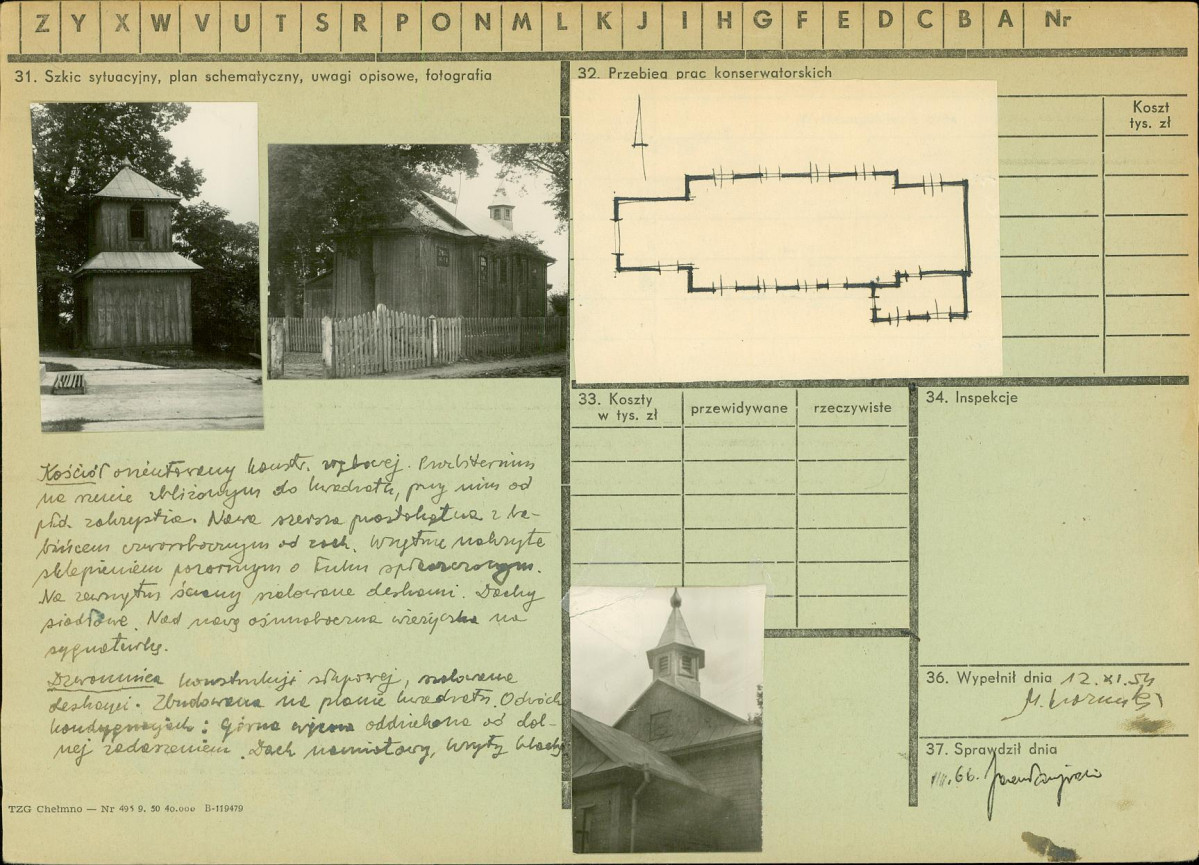 Z Y X W V U T S R P O N M L K J I H G F E D C B A Nr
31. Szkic sytuacyjny, plan schematyczny, uwagi opisowe, fotografia
32. Przebieg prac konserwatorskich
Koszt
tys. zł
Kościół orientowany konstr. zrębowej. Prezbiterium
na rzucie zbliżonym do kwadratu, przy nim od
płd. zakrystia. Nawa szersza prostokątna z ba-
bińcem czworobocznym od zach. Wnętrze nakryte
sklepieniem pozornym o łuku spłaszczonym.
Na zewnątrz ściany szalowane deskami. Dachy
siodłowe. Nad nawą ośmioboczna wieżyczka na
sygnaturkę.
Dzwonnica konstrukcji słupowej, szalowana
deskami. Zbudowana na planie kwadratu. O dwóch
kondygnacjach: Górna oddzielona od dol-
nej zadaszeniem. Dach namiotowy, kryty blachą
33. Koszty
w tys. zł
przewidywane
rzeczywiste
34. Inspekcje
36. Wypełnił dnia 12. XI. 59
37. Sprawdził dnia
66.
TZG Chełmno — Nr 495 9. 50 40.000 B-119479